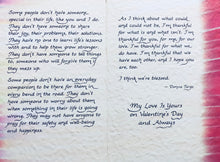 Some people don't have someone
special in their life, that you and I do.
They don't have someone to share
their joy, their problems, their additions.
They have no one to learn life's lessons
with and to help them grow stronger.
They don't have someone to tell things
to, someone who will forgive them if
they mess up.
Some people don't have an everyday
companion to be there for them in
every bend in the road. They don't
have someone to worry about them
when something in their life is going
wrong. They may not have anyone to
pray for their safety and well-being
and happiness.
As I think about what could,
and could not be, I'm thankful
for what is and what isn't. I'm
thankful for you, for my love.
I'm thankful for what we
do have. I'm thankful that we
have each other, and I hope you
are too.
I think we're blessed.
- Donna Fargo
My Love Is Yours
on Valentine's Day
and Always